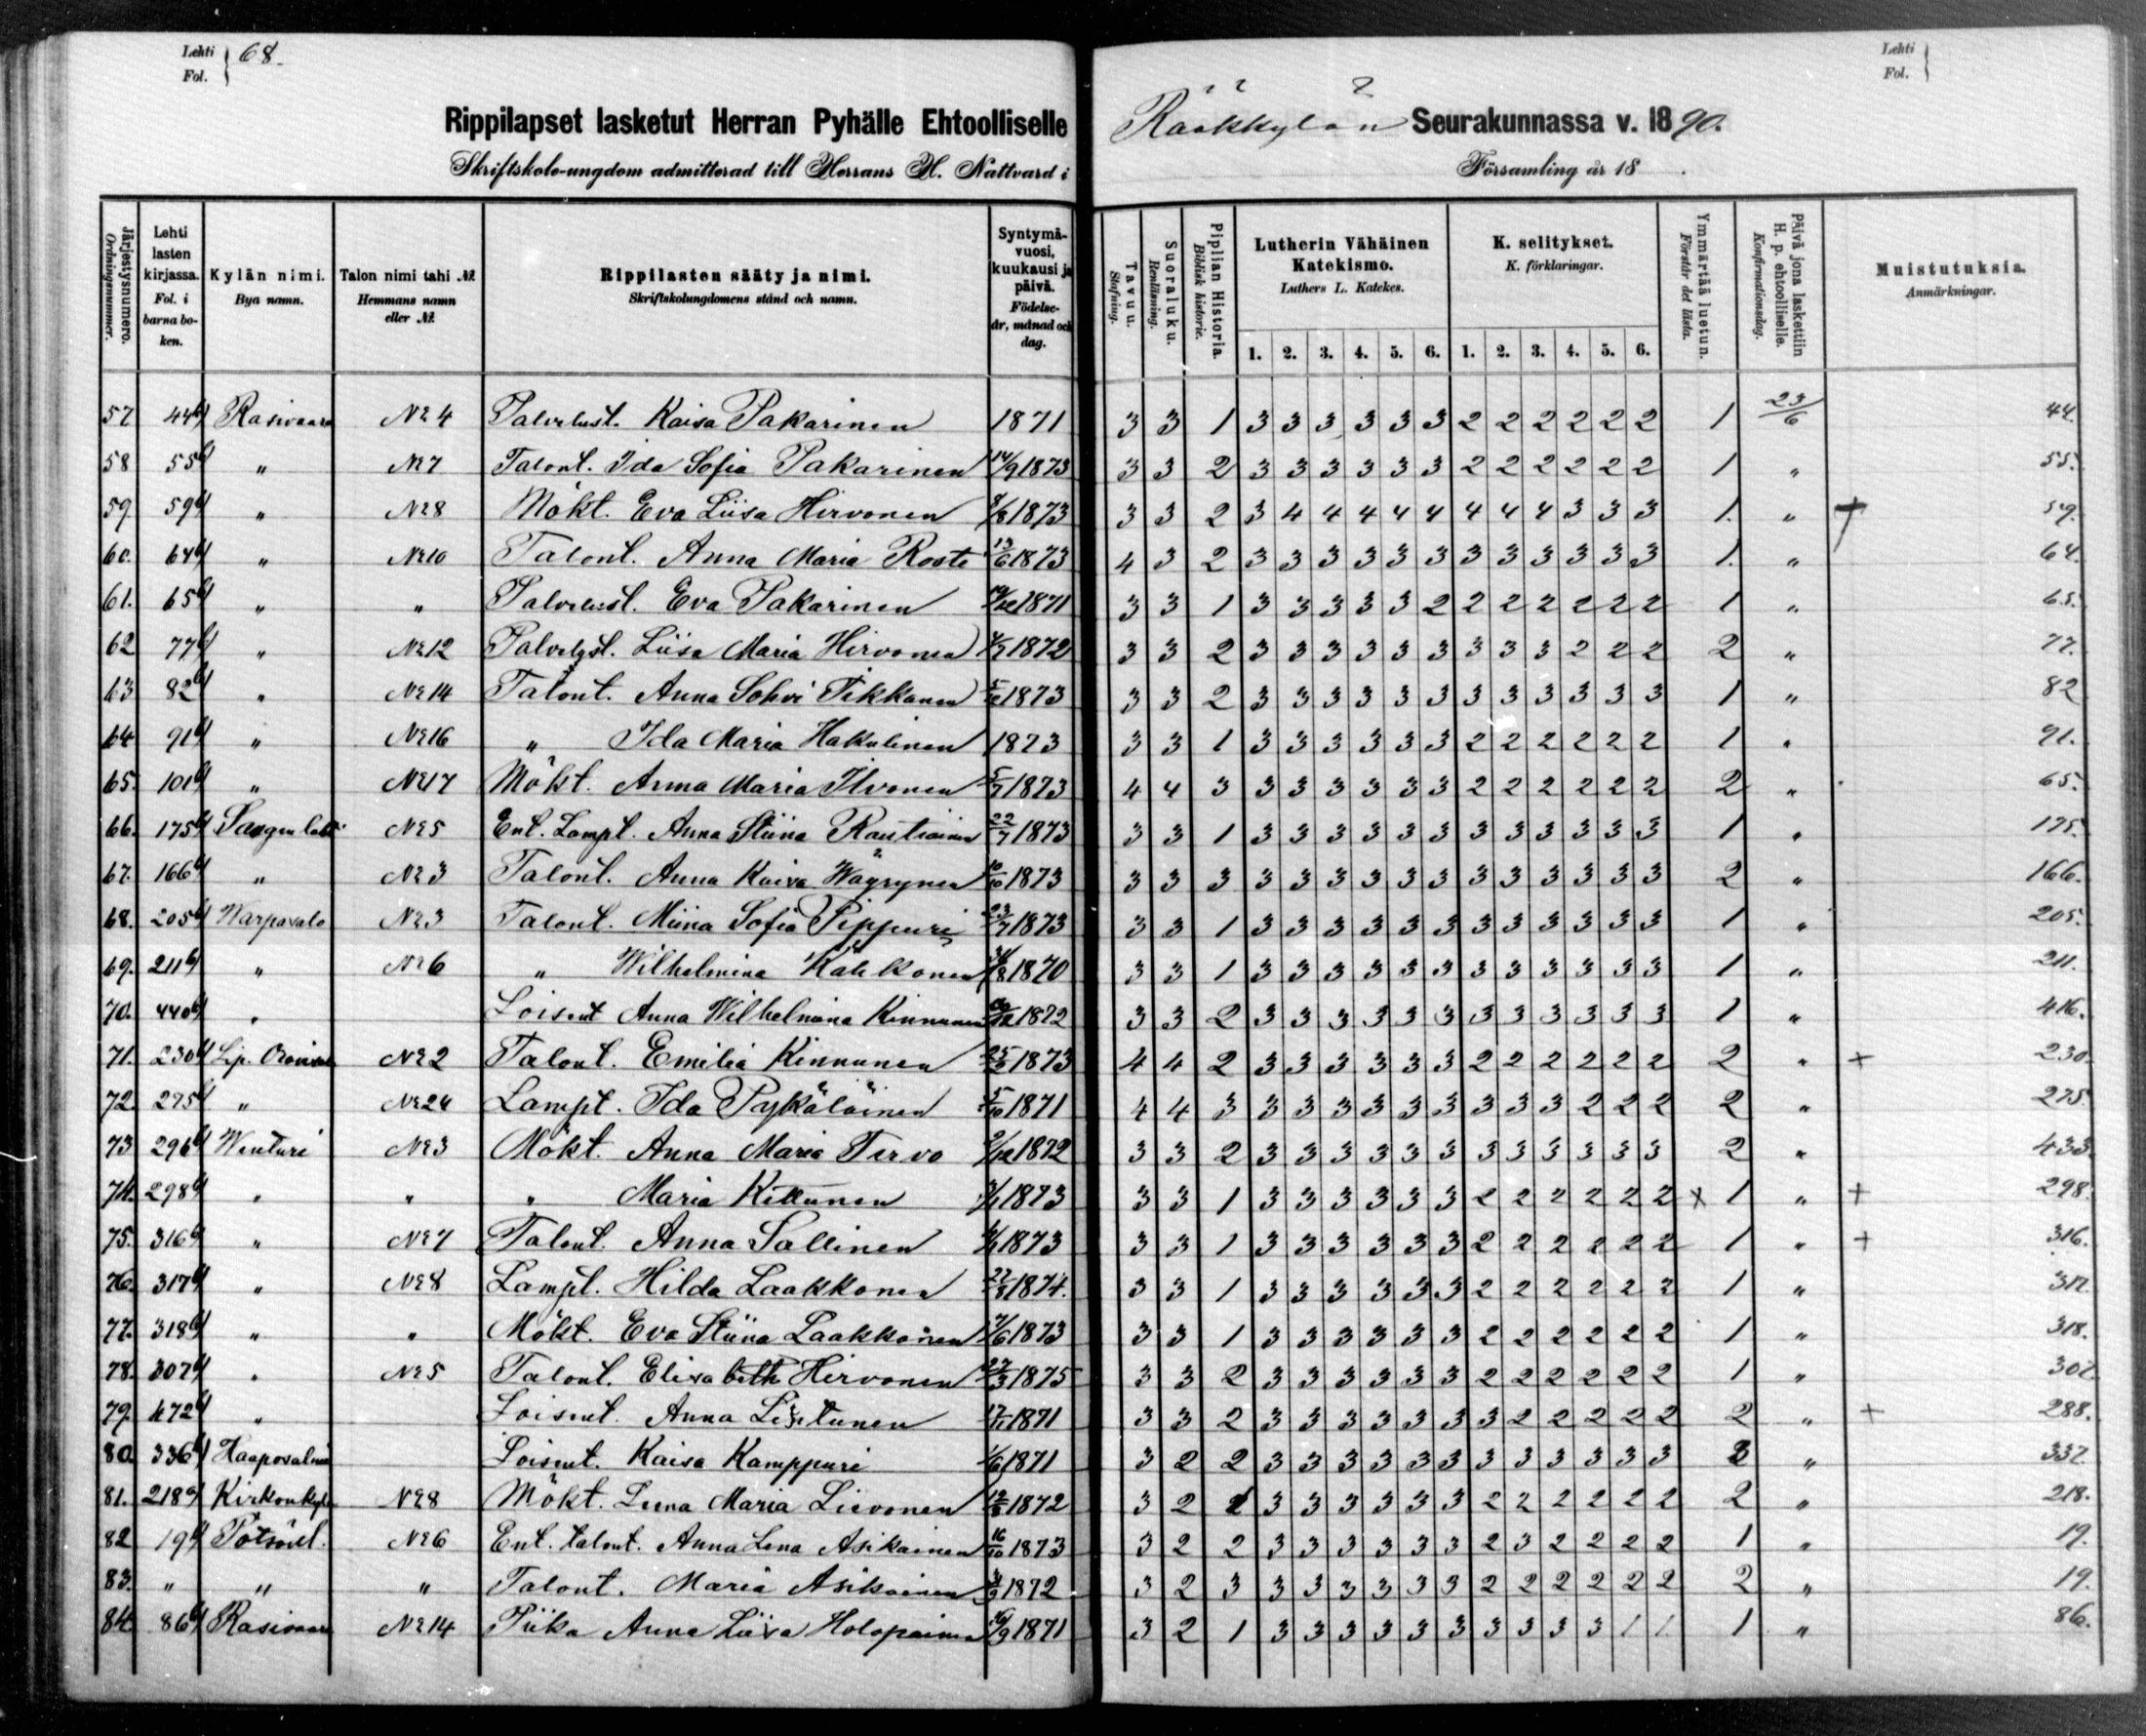 Lehti
Fol. } 68.
Rippilapset lasketut Herran Pyhälle Ehtoolliselle
Skriftskolo-ungdom admitterad till Herrans H. Nattvard i
Lehti
Fol. }
Rääkkylän Seurakunnassa v. 1890.
Församling år 18 .
Järjestysnumero. Ordningsnummer. | Lehti lasten kirjassa. Fol. i barna boken. | Kylän nimi. Bya namn. | Talon nimi tahi №. Hemmans namn eller №. | Rippilasten sääty ja nimi. Skriftskolungdomens stånd och namn. | Syntymävuosi, kuukausi ja päivä. Födelseår, månad och dag. | Tavuu. Stafning. | Suoraluku. Renläsning. | Piplian Historia. Biblisk historie. | Lutherin Vähäinen Katekismo. Luthers L. Katekes. 1. 2. 3. 4. 5. 6. | K. selitykset. K. förklaringar. 1. 2. 3. 4. 5. 6. | Ymmärtää luetun. Förstår det lästa. | Päivä jona laskettiin H. p. ehtoolliselle. Konfirmationsdag. | Muistutuksia. Anmärkningar.
57 44 Rasivaara №4 Palvelust. Kaisa Pakarinen 1871 3 3 1 3 3 3 3 3 3 2 2 2 2 2 2 1 23/6 44.
58 55 " №7 Talont. Ida Sofia Pakarinen 14/9 1873 3 3 2 3 3 3 3 3 3 2 2 2 2 2 2 1 " 55.
59 59 " №8 Mökt. Eva Liisa Hirvonen 8/8 1873 3 3 2 3 4 4 4 4 4 4 4 4 3 3 3 1. " + 59.
60. 64 " №10 Talont. Anna Maria Roste 13/6 1873 4 3 2 3 3 3 3 3 3 3 3 3 3 3 3 1. " 64.
61. 65 " " Palvelust. Eva Pakarinen 1871 3 3 1 3 3 3 3 3 2 2 2 2 2 2 2 1 " 65.
62 77 " №12 Palvelust. Liisa Maria Hirvonen 1872 3 3 2 3 3 3 3 3 3 3 3 3 2 2 2 2 " 77.
63 82 " №14 Talont. Anna Sohvi Tikkanen 1873 3 3 2 3 3 3 3 3 3 3 3 3 3 3 3 1 " 82
64 91 " №16 " Ida Maria Hakulinen 1873 3 3 1 3 3 3 3 3 3 2 2 2 2 2 2 1 " 91.
65. 101 " №17 Mökt. Anna Maria Ilvonen 5/7 1873 4 4 3 3 3 3 3 3 3 2 2 2 2 2 2 2 " 65.
66. 175 №5 Ent. Lampt. Anna Stiina Rautiainen 22/7 1873 3 3 1 3 3 3 3 3 3 3 3 3 3 3 3 1 " 175.
67. 166 " №3 Talont. Anna Kaisa Wäyrynen 10/10 1873 3 3 3 3 3 3 3 3 3 3 3 3 3 3 3 2 " 166.
68. 205 Warpasalo №3 Talont. Miina Sofia Pippuri 23/7 1873 3 3 1 3 3 3 3 3 3 3 3 3 3 3 3 1 " 205.
69. 211 " №6 " Wilhelmina 1870 3 3 1 3 3 3 3 3 3 3 3 3 3 3 3 1 " 211.
70. 440 " Loisent Anna Wilhelmina Kinnunen 1872 3 3 2 3 3 3 3 3 3 3 3 3 3 3 3 1 " 416.
71. 230 Lip. №2 Talont. Emilia Kinnunen 1873 4 4 2 3 3 3 3 3 3 2 2 2 2 2 2 2 " + 230.
72. 275 " №24 Lampt. Ida Pykäläinen 5/10 1871 4 4 3 3 3 3 3 3 3 3 3 3 2 2 2 2 " 275.
73 296 Wenturi №3 Mökt. Anna Maria Tervo 1872 3 3 2 3 3 3 3 3 3 3 3 3 3 3 3 2 " 433.
74. 298 " " " Maria Kettunen 1873 3 3 1 3 3 3 3 3 3 2 2 2 2 2 2 x 1 " + 298.
75. 316 " №7 Talont. Anna Sallinen 1873 3 3 1 3 3 3 3 3 3 2 2 2 2 2 2 1 " + 316.
76. 317 " №8 Lampt. Hilda Laakkonen 1874. 3 3 1 3 3 3 3 3 3 2 2 2 2 2 2 1 " 317.
77. 318 " " Mökt. Eva Stiina Laakkonen 1873 3 3 1 3 3 3 3 3 3 2 2 2 2 2 2 1 " 318.
78. 307 " №5 Talont. Elisabeth Hirvonen 27/3 1875 3 3 2 3 3 3 3 3 3 2 2 2 2 2 2 1 " 307.
79. 472 " Loisent. Anna 1871 3 3 2 3 3 3 3 3 3 3 2 2 2 2 2 2 " + 288.
80. 336 Haaposalmi Loisent. Kaisa Kamppuri 1/6 1871 3 2 2 3 3 3 3 3 3 3 3 3 3 3 3 " 337.
81. 218 Kirkonkyl №8 Mökt. Leena Maria Lievonen 1872 3 2 3 3 3 3 3 3 2 2 2 2 2 2 2 " 218.
82 19 Potsöil. №6 Ent. talont. Anna Lena Asikainen 16/10 1873 3 2 2 3 3 3 3 3 3 2 3 2 2 2 2 1 " 19.
83. " " " Talont. Maria Asikainen 1872 3 2 3 3 3 3 3 3 3 2 2 2 2 2 2 2 " 19.
84. 86 Rasivaara №14 Piika Anna Liisa Holopainen 1871 3 2 1 3 3 3 3 3 3 3 3 3 3 1 1 1 " 86.